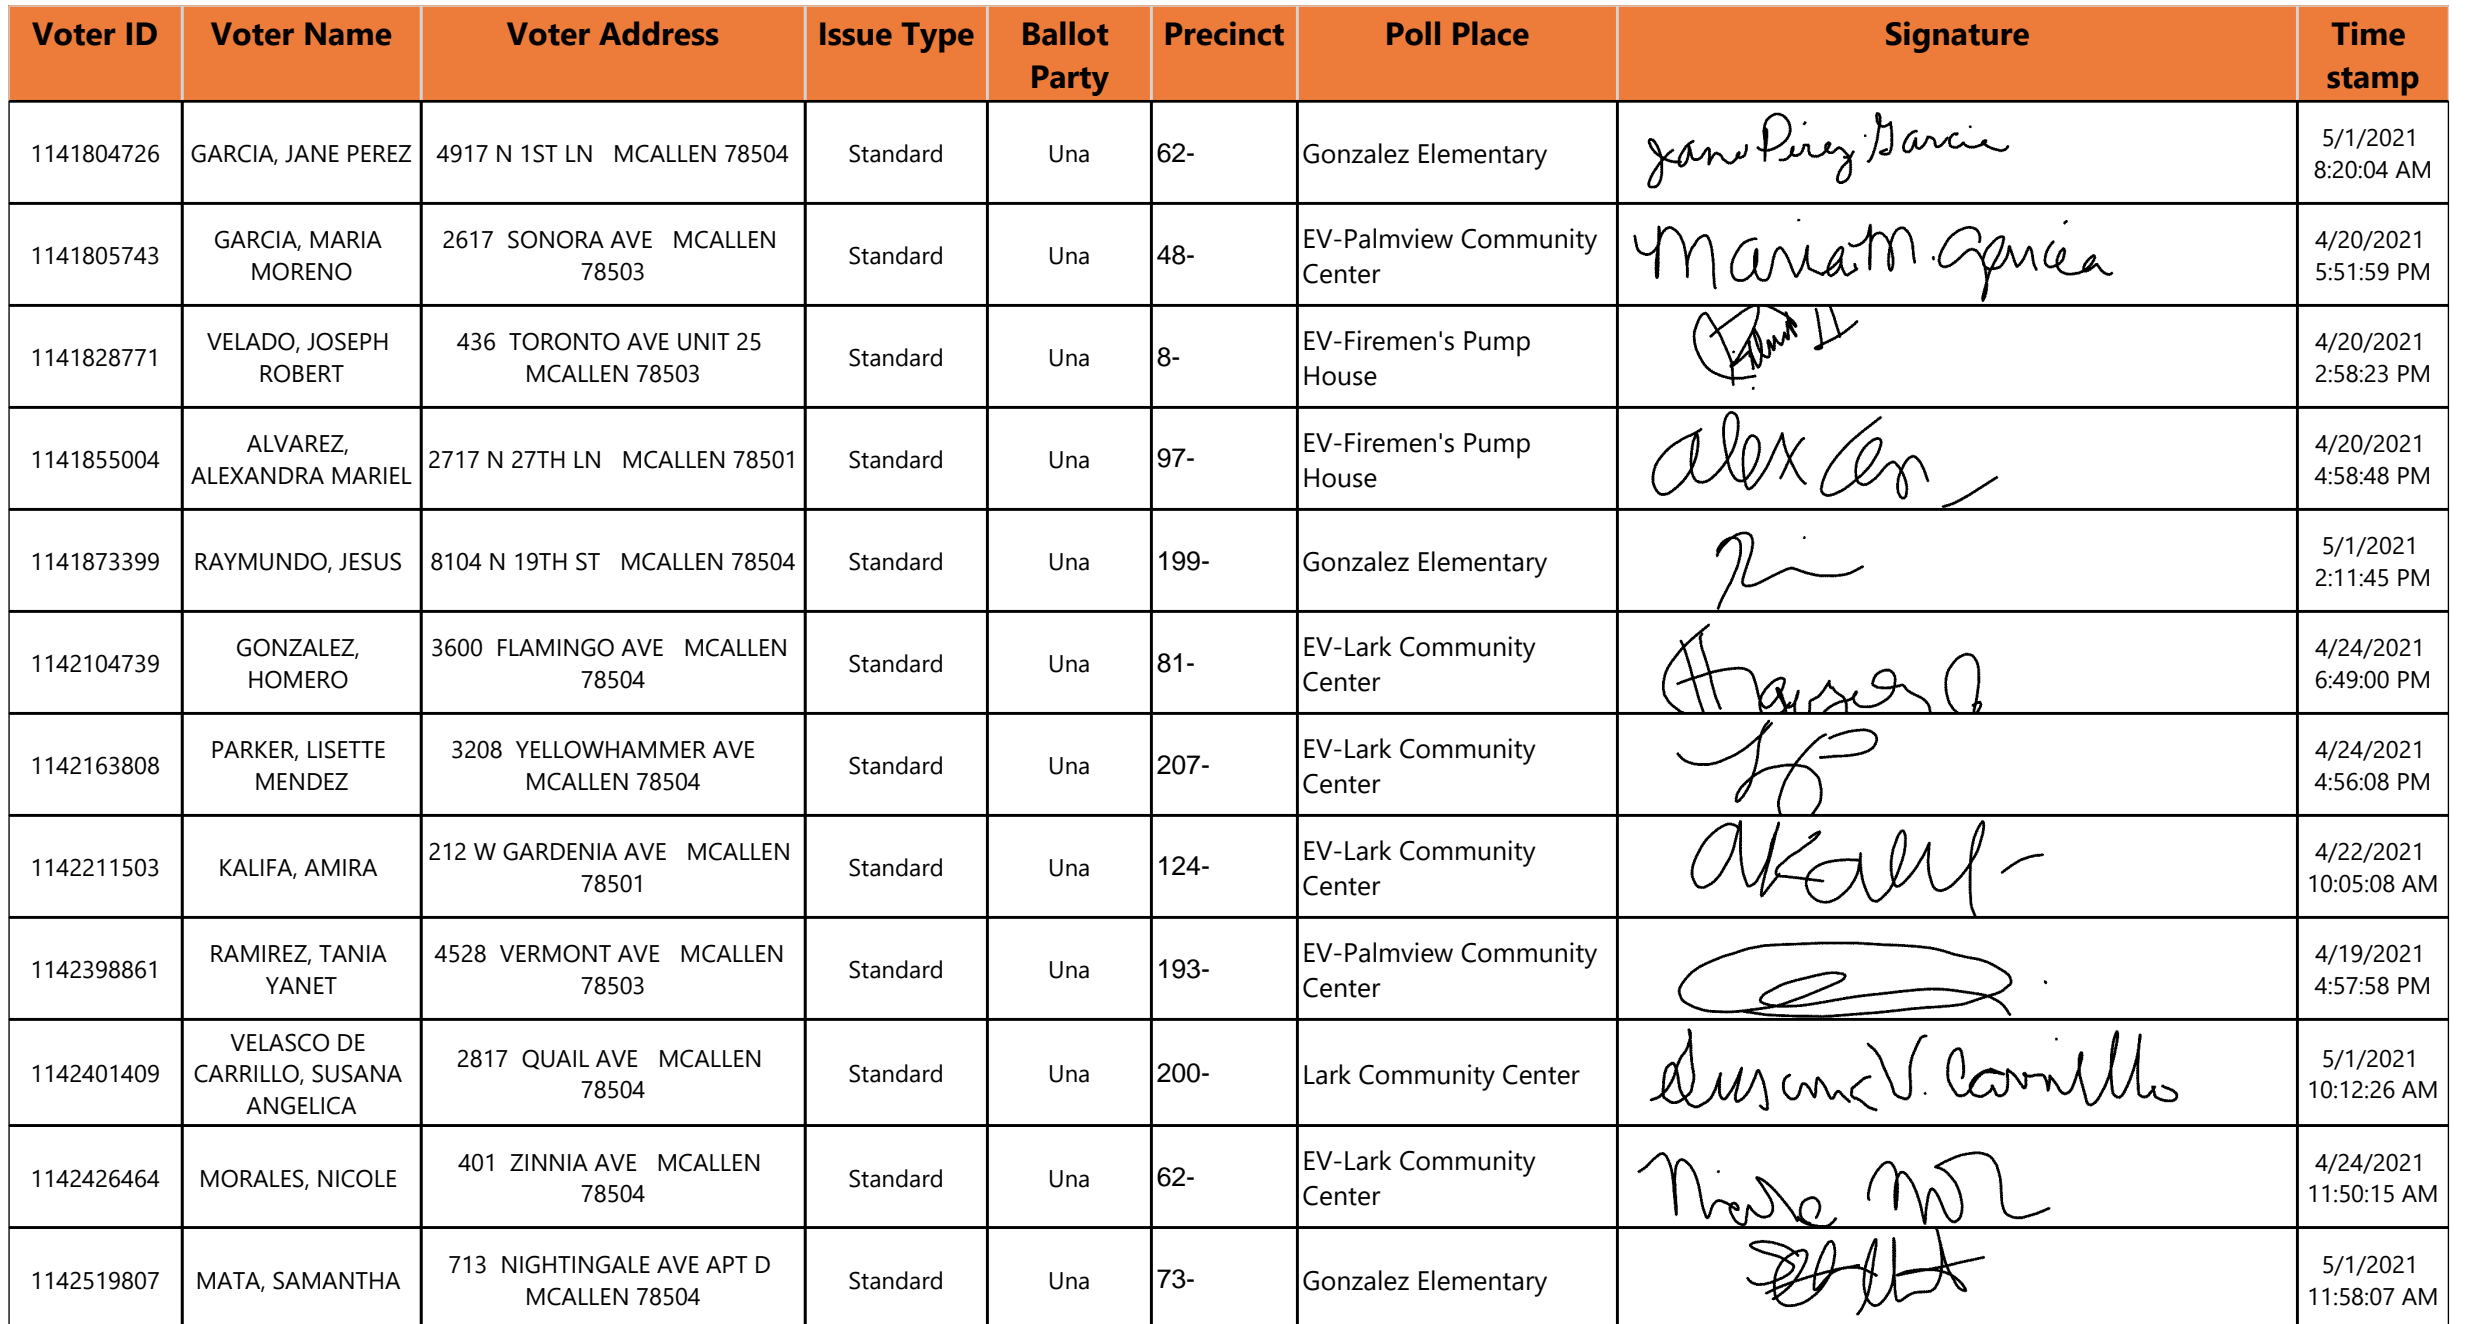 Voter ID Voter Name Voter Address Issue Type Ballot Party Precinct Poll Place Signature Time stamp
1141804726 GARCIA, JANE PEREZ 4917 N 1ST LN MCALLEN 78504 Standard Una 62- Gonzalez Elementary Jane Perez Garcia 5/1/2021 8:20:04 AM
1141805743 GARCIA, MARIA MORENO 2617 SONORA AVE MCALLEN 78503 Standard Una 48- EV-Palmview Community Center Maria M. Garcia 4/20/2021 5:51:59 PM
1141828771 VELADO, JOSEPH ROBERT 436 TORONTO AVE UNIT 25 MCALLEN 78503 Standard Una 8- EV-Firemen's Pump House 4/20/2021 2:58:23 PM
1141855004 ALVAREZ, ALEXANDRA MARIEL 2717 N 27TH LN MCALLEN 78501 Standard Una 97- EV-Firemen's Pump House alex 4/20/2021 4:58:48 PM
1141873399 RAYMUNDO, JESUS 8104 N 19TH ST MCALLEN 78504 Standard Una 199- Gonzalez Elementary 5/1/2021 2:11:45 PM
1142104739 GONZALEZ, HOMERO 3600 FLAMINGO AVE MCALLEN 78504 Standard Una 81- EV-Lark Community Center 4/24/2021 6:49:00 PM
1142163808 PARKER, LISETTE MENDEZ 3208 YELLOWHAMMER AVE MCALLEN 78504 Standard Una 207- EV-Lark Community Center 4/24/2021 4:56:08 PM
1142211503 KALIFA, AMIRA 212 W GARDENIA AVE MCALLEN 78501 Standard Una 124- EV-Lark Community Center 4/22/2021 10:05:08 AM
1142398861 RAMIREZ, TANIA YANET 4528 VERMONT AVE MCALLEN 78503 Standard Una 193- EV-Palmview Community Center 4/19/2021 4:57:58 PM
1142401409 VELASCO DE CARRILLO, SUSANA ANGELICA 2817 QUAIL AVE MCALLEN 78504 Standard Una 200- Lark Community Center Susana V. Carrillo 5/1/2021 10:12:26 AM
1142426464 MORALES, NICOLE 401 ZINNIA AVE MCALLEN 78504 Standard Una 62- EV-Lark Community Center Nicole 4/24/2021 11:50:15 AM
1142519807 MATA, SAMANTHA 713 NIGHTINGALE AVE APT D MCALLEN 78504 Standard Una 73- Gonzalez Elementary 5/1/2021 11:58:07 AM